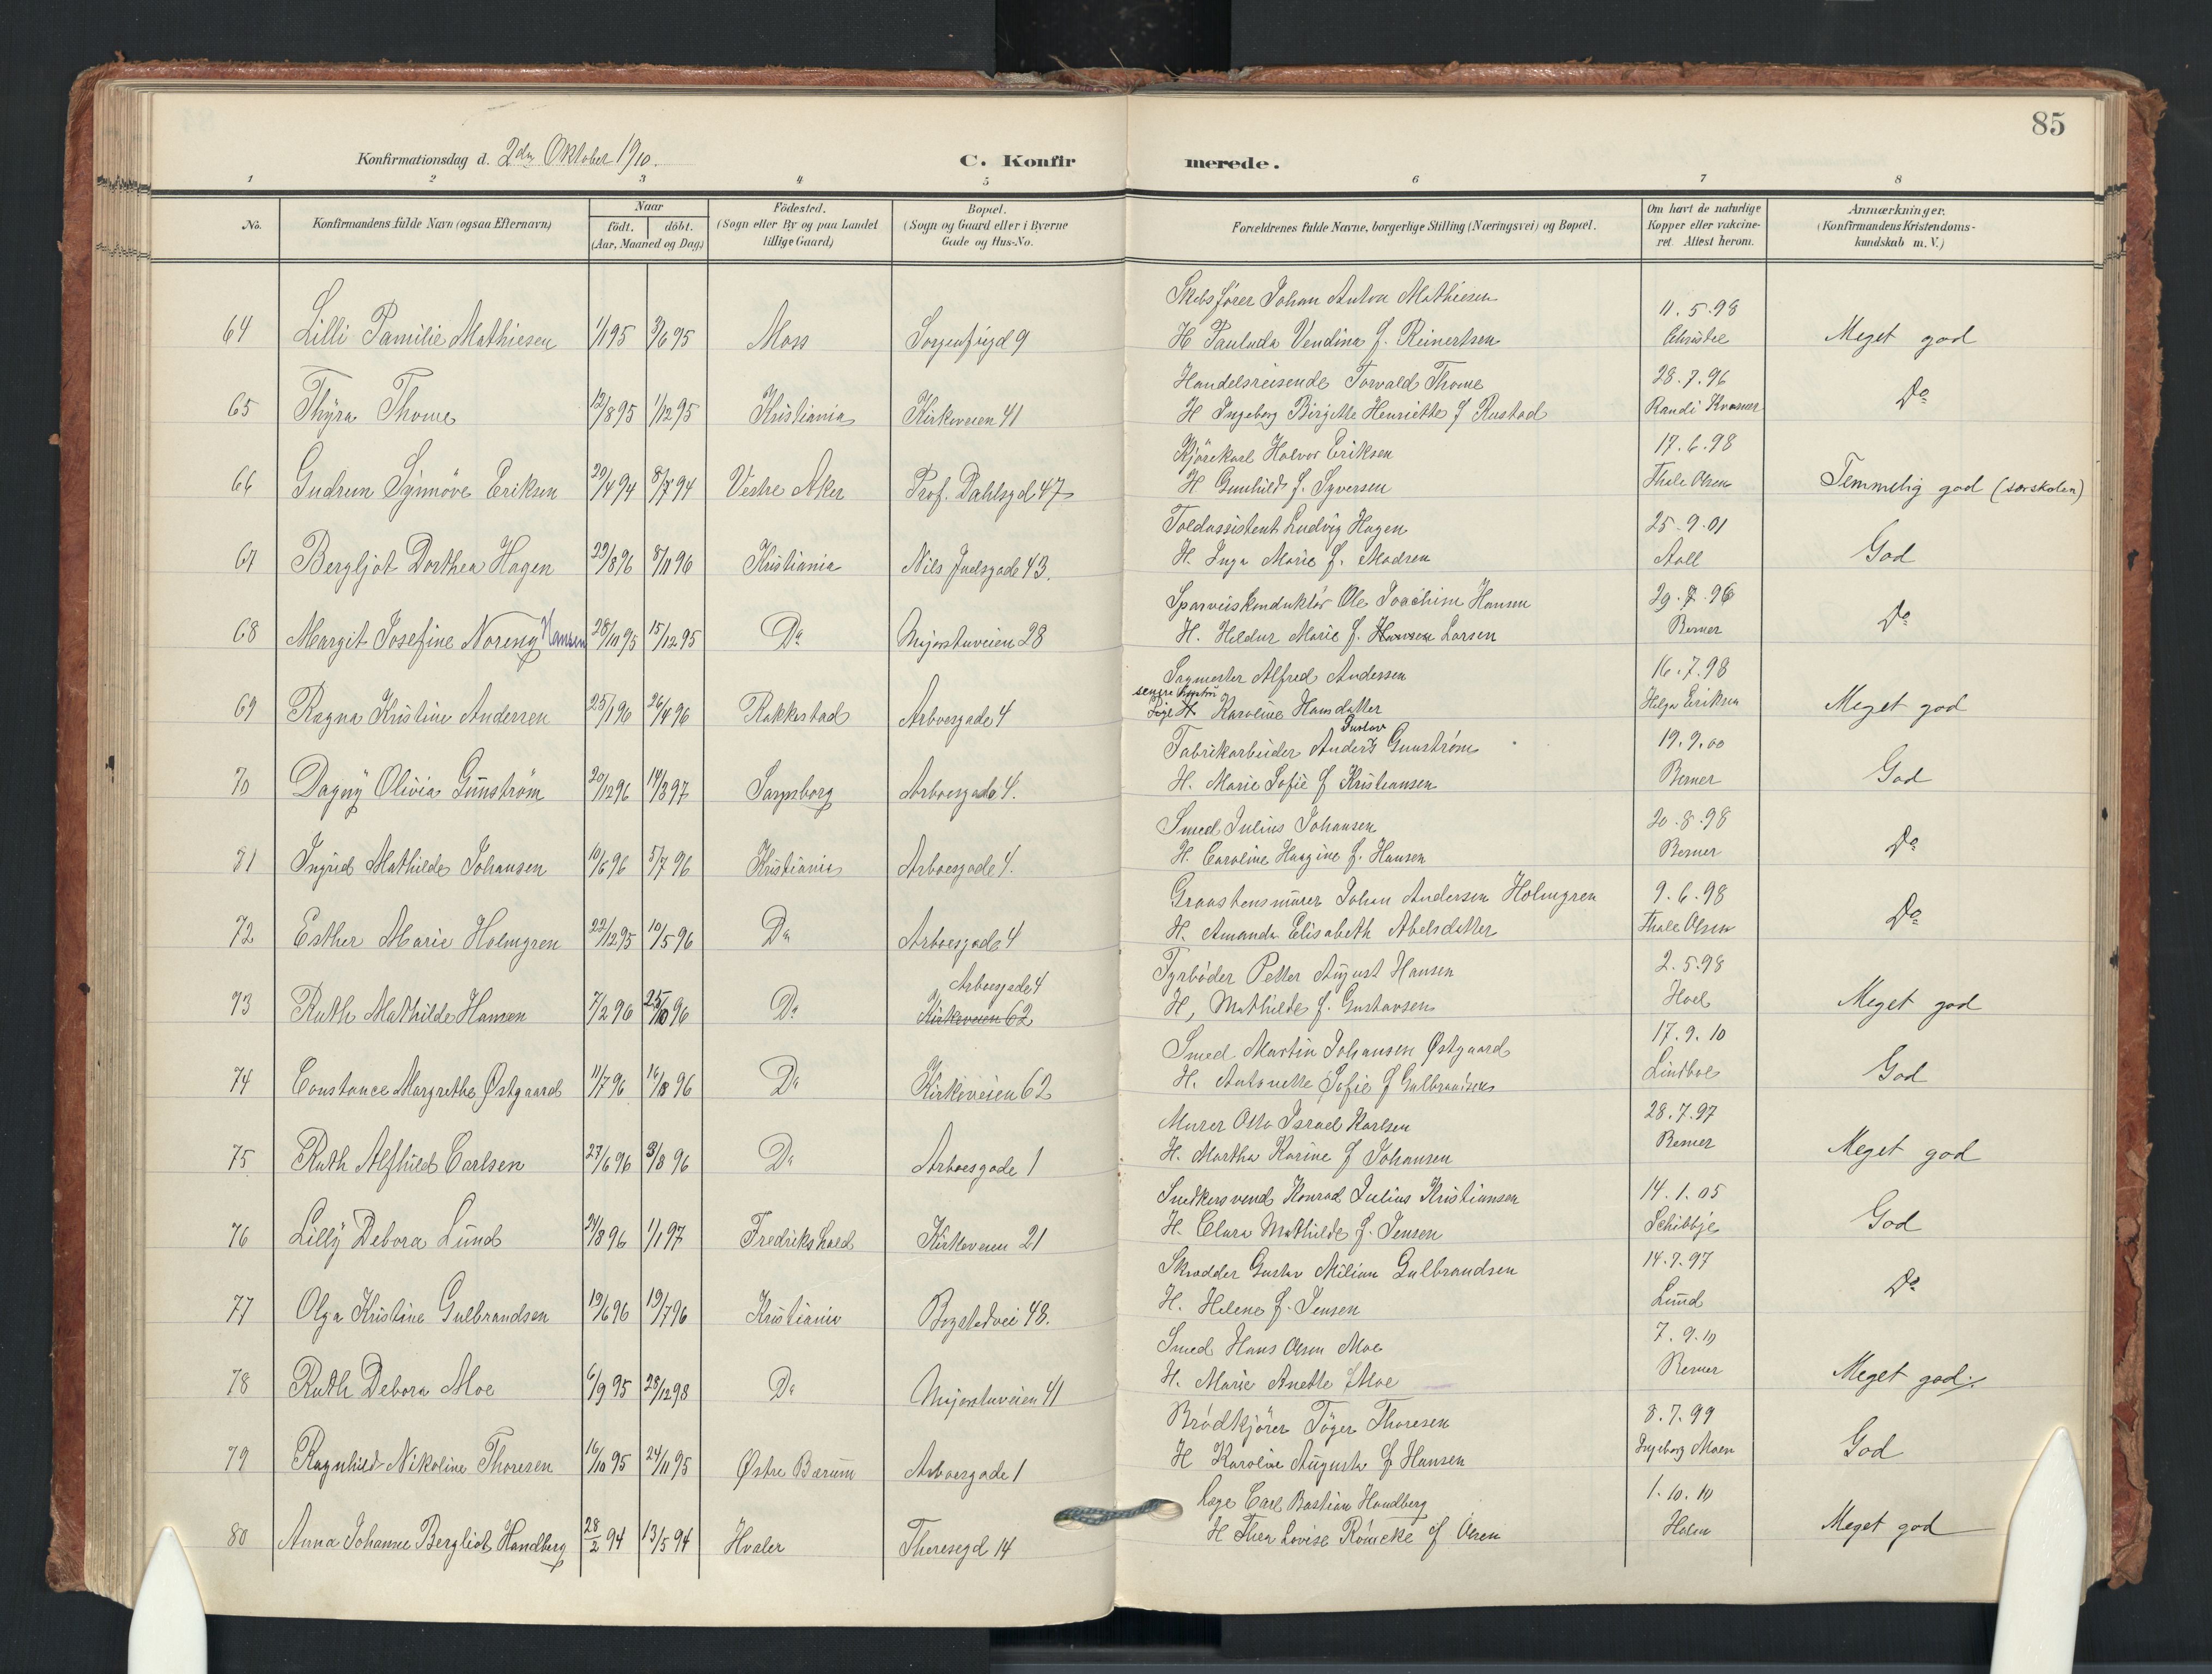 85
Konfirmationsdag d. 2den Oktober 1910.
C. Konfirmerede.
1 2 3 4 5 6 7 8
No.
Konfirmandens fulde Navn (ogsaa Efternavn)
Naar
født. døbt.
(Aar, Maaned og Dag)
Fødested.
(Sogn eller By og paa Landet
tillige Gaard)
Bopæl.
(Sogn og Gaard eller i Byerne
Gade og Hus-No.
Forældrenes fulde Navne, borgerlige Stilling (Næringsvei) og Bopæl.
Om havt de naturlige
Kopper eller vakcine-
ret. Attest herom.
Anmærkninger.
(Konfirmandens Kristendoms-
kundskab m. V.)
Skibsfører Johan Anton Mathiesen
11.5.98
64 Lilli Pamilie Mathiesen 1/1 95 3/6 95 Moss Sorgenfrigd 9 H Pauluda Vendina f. Reinertsen Christie Meget god
Handelsreisende Torvald Thome 28.7.96
65 Thyra Thome 12/8 95 1/12 95 Kristiania Kirkeveien 41 H Ingeborg Birgitte Henriette f Rustad Randi Kvasner Do
Kjørekarl Halvor Eriksen 17.6.98
66 Gudrun Synnöve Eriksen 20/4 94 8/7 94 Vestre Aker Prof. Dahlsgd 47 H Gunhild f. Syversen Thale Olsen Temmelig god (særskolen)
Toldassistent Ludvig Hagen 25.9.01
67 Bergljot Dorthea Hagen 29/8 96 8/11 96 Kristiania Nils Juelsgade 43. H. Inga Marie f. Madsen Aall God
Sporveiskonduktør Ole Joachim Hansen 29.7.96
68 Margit Josefine Noreng Hansen 28/10 95 15/12 95 Do Majorstuveien 28 H. Heldur Marie f. Hansen Larsen Berner Do
Sagmester Alfred Andersen 16.7.98
69 Ragna Kristine Andersen 25/1 96 26/4 96 Rakkestad Arboesgade 4 Pige H Karoline Hansdatter Helga Eriksen Meget god
Gustav
Fabrikarbeider Anders Gunström 19.9.00
70 Dagny Olivia Gunström 20/12 96 14/3 97 Sarpsborg Arboesgade 4. H. Marie Sofie f Kristiansen Berner God
Smed Julius Johansen 20.8.98
71 Ingrid Mathilde Johansen 10/6 96 5/7 96 Kristiania Arboesgade 4. H. Caroline Haagine f. Hansen Berner Do
Graastensmurer Johan Andersen Holmgren 9.6.98
72 Esther Marie Holmgren 22/12 95 10/5 96 Do Arboesgade 4 H. Amanda Elisabeth Abelsdatter Thale Olsen Do
Arboesgade 4 Fyrbøder Petter August Hansen 2.5.98
73 Ruth Mathilde Hansen 7/2 96 25/10 96 Do Kirkeveien 62 H, Mathilde f. Gustavsen Hoel Meget god
Smed Martin Johansen Østgaard 17.9.10
74 Constance Margrethe Østgaard 11/7 96 16/8 96 Do Kirkeveien 62 H. Antonette Sofie f Gulbrandsen Lindboe God
Murer Otto Israel Karlsen 28.7.97
75 Ruth Alfhild Carlsen 27/6 96 3/8 96 Do Arboesgade 1 H. Martha Karine f Johansen Berner Meget god
Snedkersvend Konrad Julius Kristiansen 14.1.05
76 Lilly Debora Lund 24/8 96 1/1 97 Fredrikshald Kirkeveien 21 H. Clara Mathilde f. Jensen Schibbje God
Skrædder Gustav Milian Gulbrandsen 14.7.97
77 Olga Kristine Gulbrandsen 19/6 96 19/7 96 Kristiania Bogstadvei 48. H. Helene f. Jensen Lund Do
Smed Hans Olsen Moe 7.9.10
78 Ruth Debora Moe 6/9 95 28/12 98 Do Majorstuveien 41 H. Marie Anette f Moe Berner Meget god.
Brødkjører Töger Thoresen 8.7.99
79 Ragnhild Nikoline Thoresen 16/10 95 24/11 95 Østre Bærum Arboesgade 1 H Karoline Augusta f Hansen Ingeborg Moen God
Læge Carl Bastian Handberg 1.10.10
80 Anna Johanne Bergliot Handberg 28/2 94 13/5 94 Hvaler Theresegd 14 H Thea Lovise Römcke f Olsen Holm Meget god